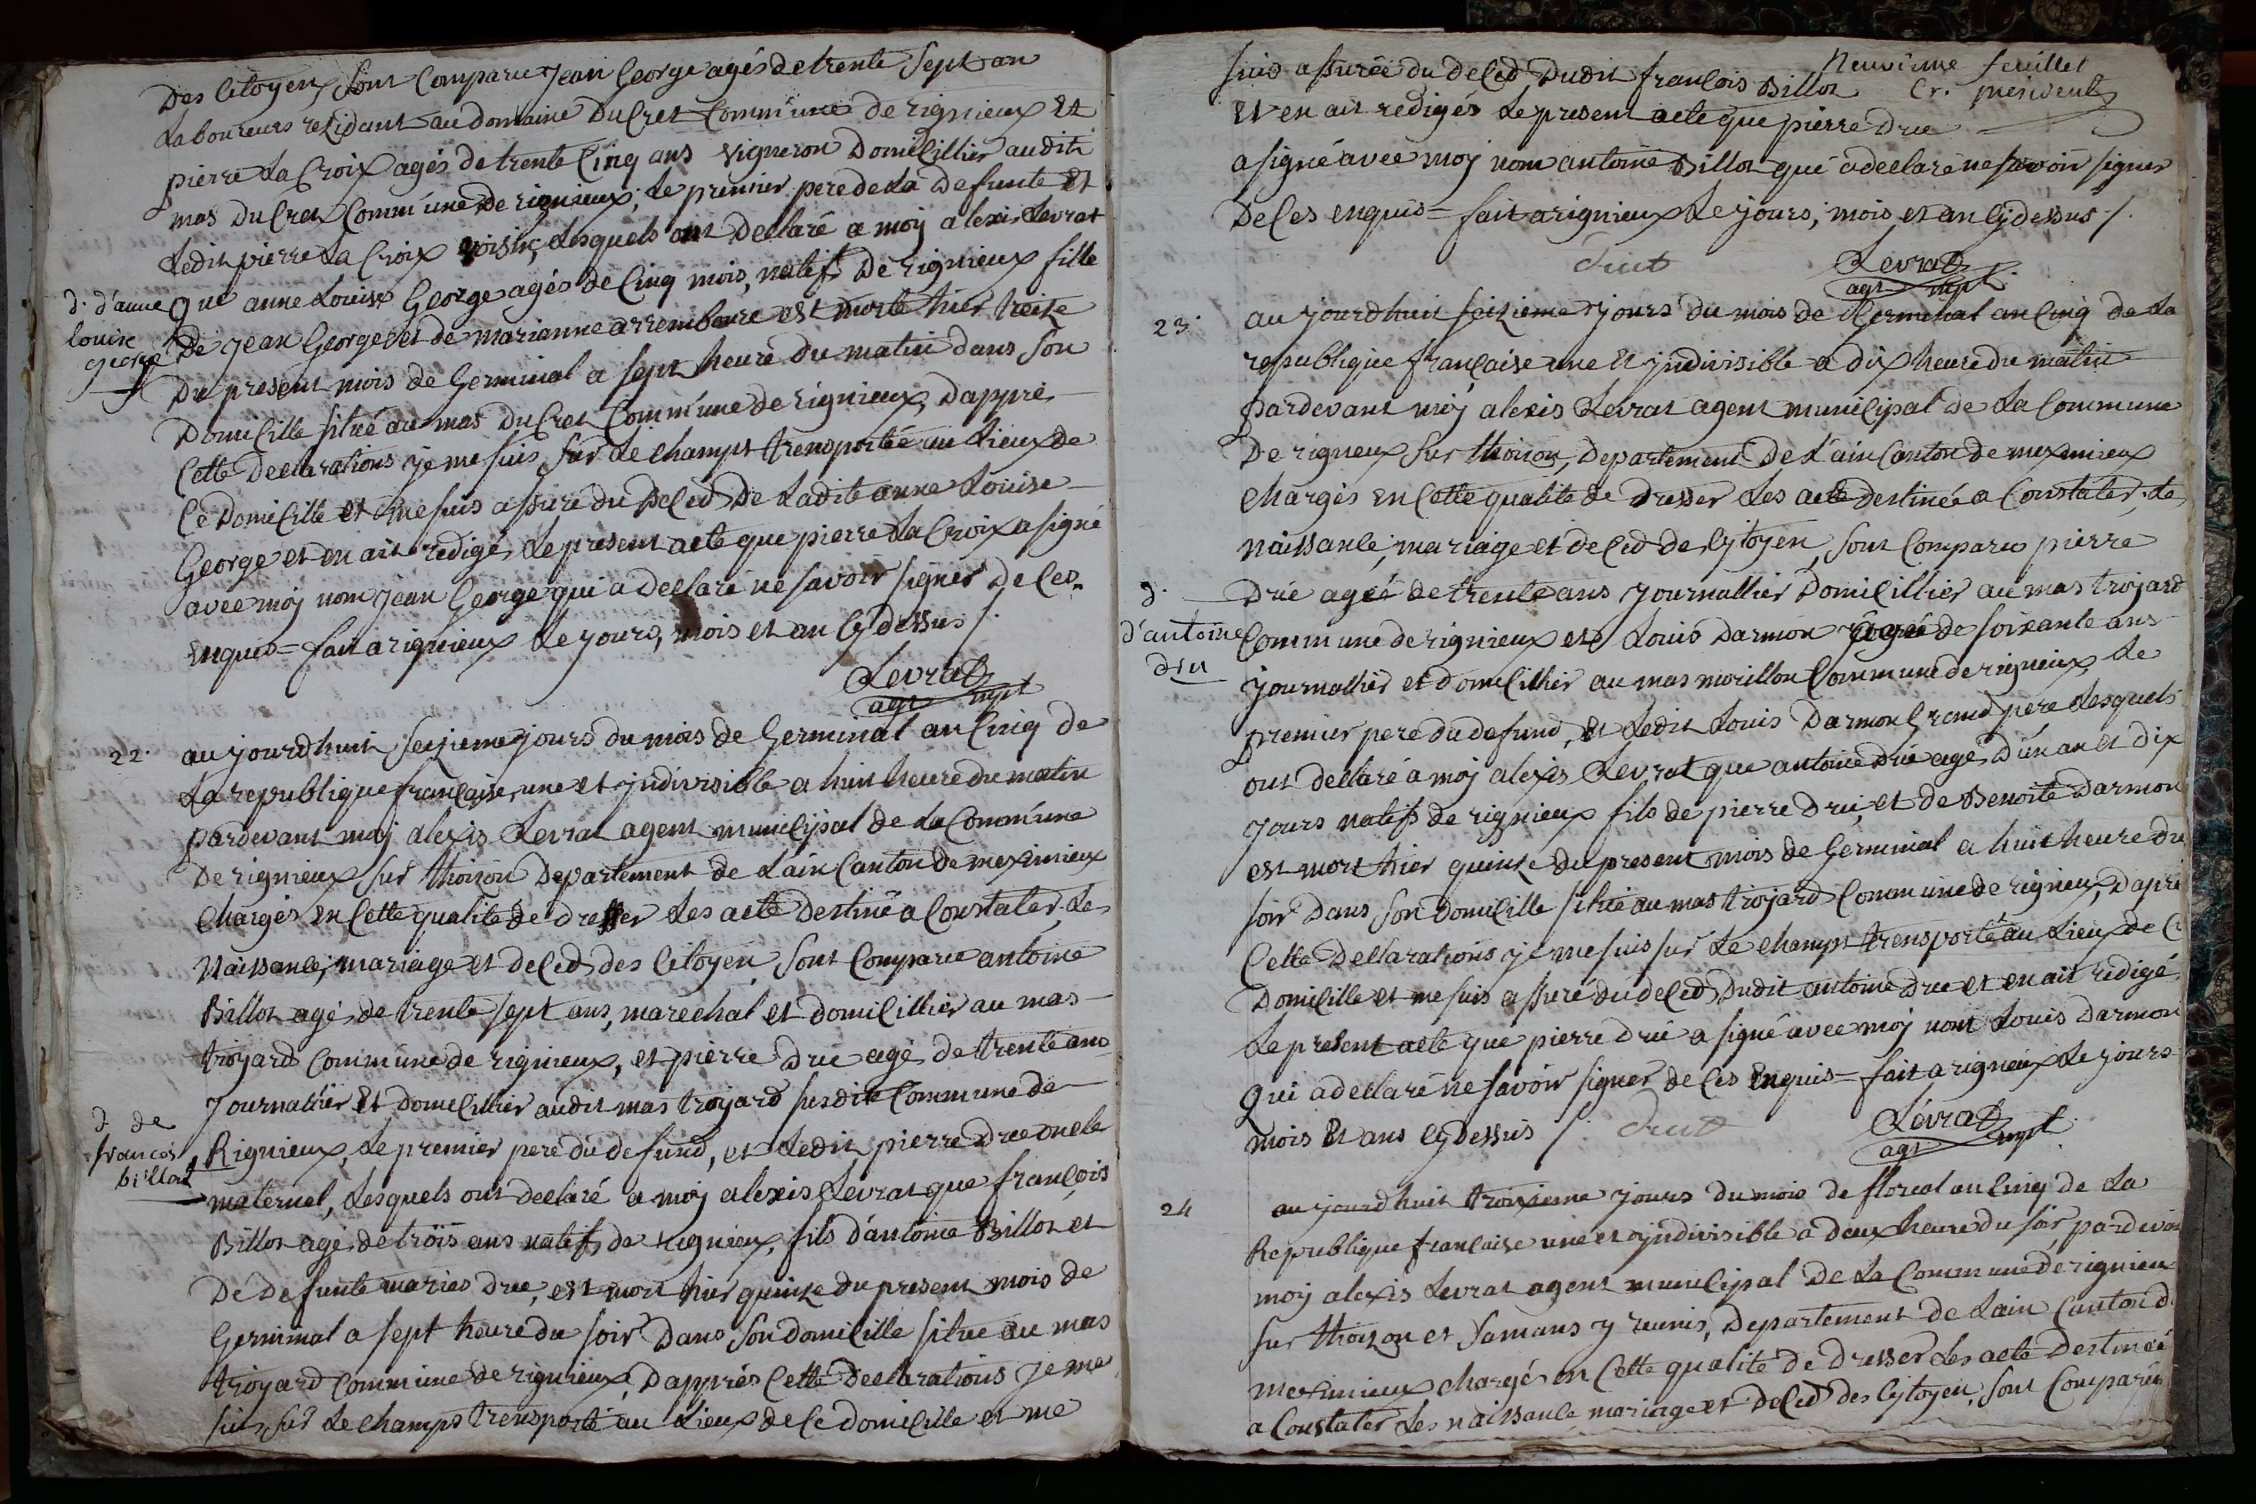 Des Citoyen, sont Comparu Jean George agés de trente Sept an
Laboureurs residant au domaine Du Cret Commune de rignieux Et
pierre La Croix agés de trente Cinq ans vigneron Domicillier audit
mas du Cret Commune de rignieux, Le premier pere de La defunte Et
Ledit pierre La Croix voisin, Lesquels ont Declaré a moy alexis Levrat
d. d'anne
louise
george
que anne Louise George agés de Cinq mois, natifs De rignieux fille
De Jean George et de marianne arremboure est morte hier treize
Du present mois de Germinal a sept heure du matin dans son
Domicille situé au mas du Cret Commune de rignieux, D'apprè
Cette Declarations je me suis sur Le champt trensporté au Lieux de
Ce Domicille et me suis assuré du Deced De Ladite anne Louise
George et en ait redigé Le present acte que pierre La Croix a signé
avec moy nom Jean George qui a declaré ne savoir signer De Ces
Enquis = fait a rignieux Le jours, mois et an Cy dessus /.
Levrat
agt mpl
22. au jourdhuit seizieme jours du mois de Germinal an Cinq de
La republique française, une et jndivisible a huit heure du matin
pardevant moy alexis Levrat agent municipal de La Commune
De rignieux sur thoison Departement de Lain Canton de meximieux
Chargés en Cette qualite de dresser Les acte Destiné a Constater, Les
Naissance, mariage et deced des Citoyen, sont Comparu antoine
Billot agé de trente sept ans, marechal et domicillier au mas
troyard Commune de rignieux, et pierre Drue agé de trente ans
Journalier Et Domicillier audit mas troyard susdite Commune de
d. de
francois
billot
Rignieux, Le premier pere du defund, et Ledit pierre Drue oncle
maternel, Lesquels ont declaré a moy alexis Levrat que françois
Billot agé de trois ans natifs de rignieux, fils d'antoine Billot et
De defunte maries drue, est mort hier quinze du present mois de
Germinal a sept heure du soir Dans son domicille situé au mas
troyard Commune de rignieux, Dapprès Cette declarations je me
suis sur Le champs trensporté au Lieux de Ce domicille et me
Neuvieme feuillet
Cr. president
suis assurée du deced Dudit françois Billot
Et en ait redigés Le present acte que pierre Drue
a signé avec moy nom antoine Billot qui a declaré ne savoir signer
De Ces enquis = fait a rignieux Le jours, mois et an Cy dessus /.
Levrat
agt mpl
23. au jourdhuit seizieme jours du mois de Germinal an Cinq de La
republique française une Et jndivisible a dix heure du matin
pardevant moy alexis Levrat agent municipal de La Commune
De rigneux sur thoison, Departement De L'ain Canton de meximieux
Chargés en Cette qualite de Dresser Les acte destinée a Constater, Les
naissance, mariage et deced des Cytoyen, sont Comparu pierre
d.
d'antoine
dru
Drue agés de trente ans Journallier Domicillier au mas troyard
Commune de rignieux et Louis Darmon agé de soixante ans
Journallier et domicillier au mas morillon Commune de rignieux, Le
premier pere du defund, Et Ledit Louis Darmon Grand pere Lesquels
ont declaré a moy alexis Levrat que antoine Drue agé d'un an et dix
jours natifs de rignieux fils de pierre drue, et de Benoite Darmon
est mort hier quinze du present mois de Germinal a huit heure du
soir Dans son domicille situé au mas troyard Commune de rigneux, D'aprè
Cette Declarations je me suis sur Le champt trensporté au Lieux de C
Domicille et me suis assuré du deced Dudit antoine drue et en ait redigé
Le present acte que pierre drue a signé avec moy nom Louis Darmon
qui a declaré ne savoir signer de Ces Enquis = fait a rignieux Le jours
mois Et ans Cy dessus /.
Levrat
agt mpl
24 au jourdhuit troisieme jours du mois de floreal an Cinq de La
Republique française une et jndivisible a deux heure du soir, pardevan
moy alexis Levrat agent municipal De La Commune de rignieux
sur thoizon et samans y reunis, Departement de Lain Canton d
meximieux chargés en Cette qualité de Dresser Les acte Destinée
a Constater Les naissance mariage et deced des Cytoyen, sont Comparu